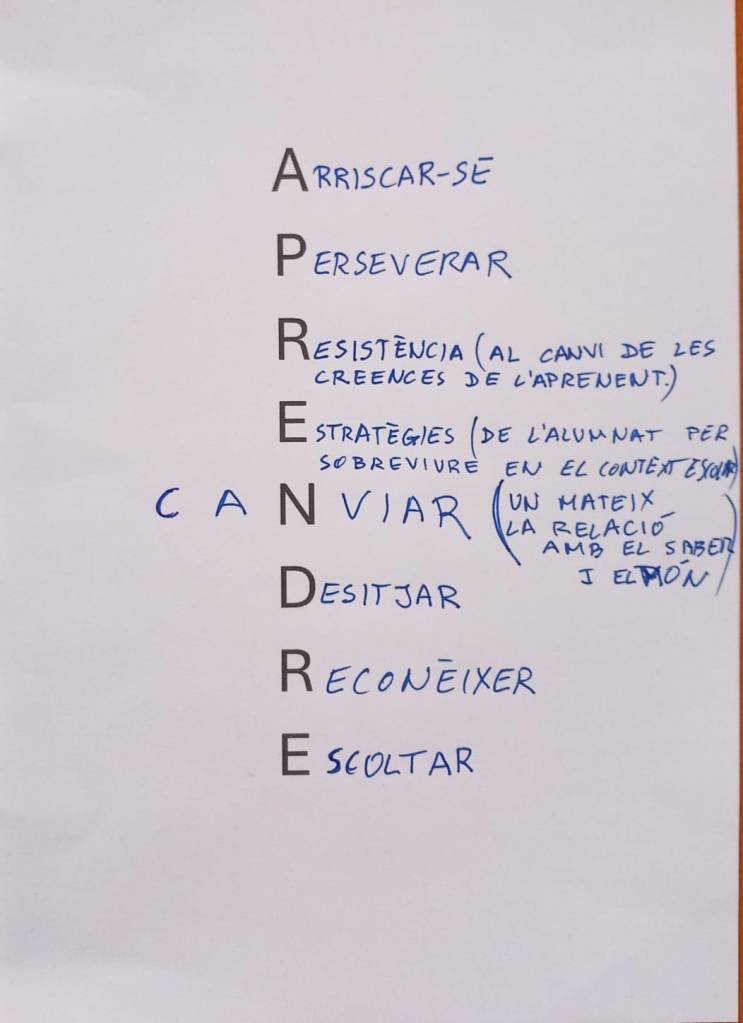 ARRISCAR-SE
PERSEVERAR
RESISTÈNCIA (AL CANVI DE LES
CREENCES DE L'APRENENT.)
ESTRATÈGIES (DE L'ALUMNAT PER
SOBREVIURE EN EL CONTEXT ESCOLAR)
CANVIAR (UN MATEIX
LA RELACIÓ
AMB EL SABER
I EL MÓN)
DESITJAR
RECONÈIXER
ESCOLTAR